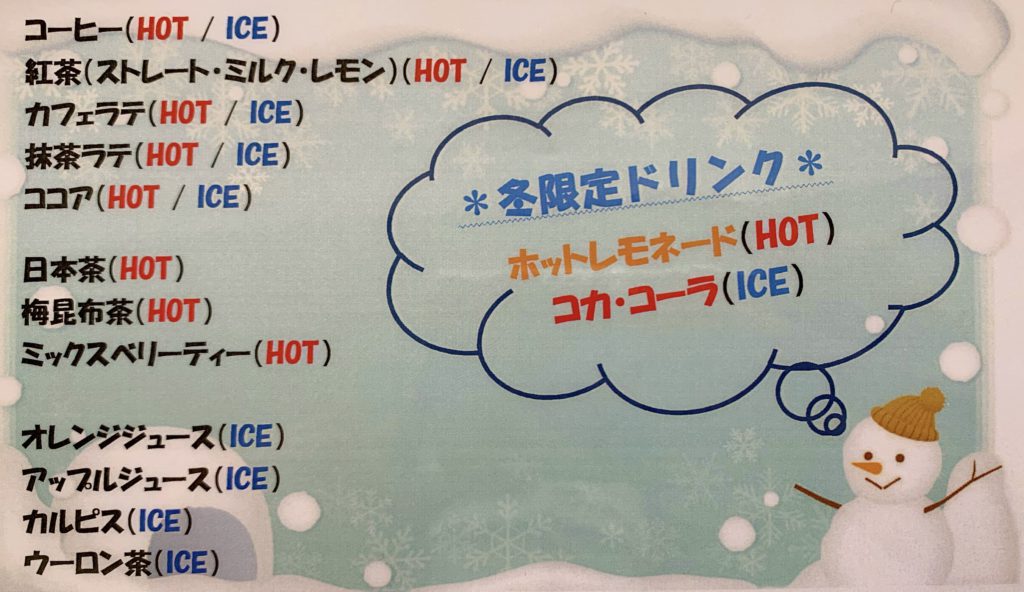 コーヒー(HOT / ICE)
紅茶(ストレート・ミルク・レモン)(HOT / ICE)
カフェラテ(HOT / ICE)
抹茶ラテ(HOT / ICE)
ココア(HOT / ICE)
日本茶(HOT)
梅昆布茶(HOT)
ミックスベリーティー(HOT)
オレンジジュース(ICE)
アップルジュース(ICE)
カルピス(ICE)
ウーロン茶(ICE)
＊冬限定ドリンク＊
ホットレモネード(HOT)
コカ・コーラ(ICE)